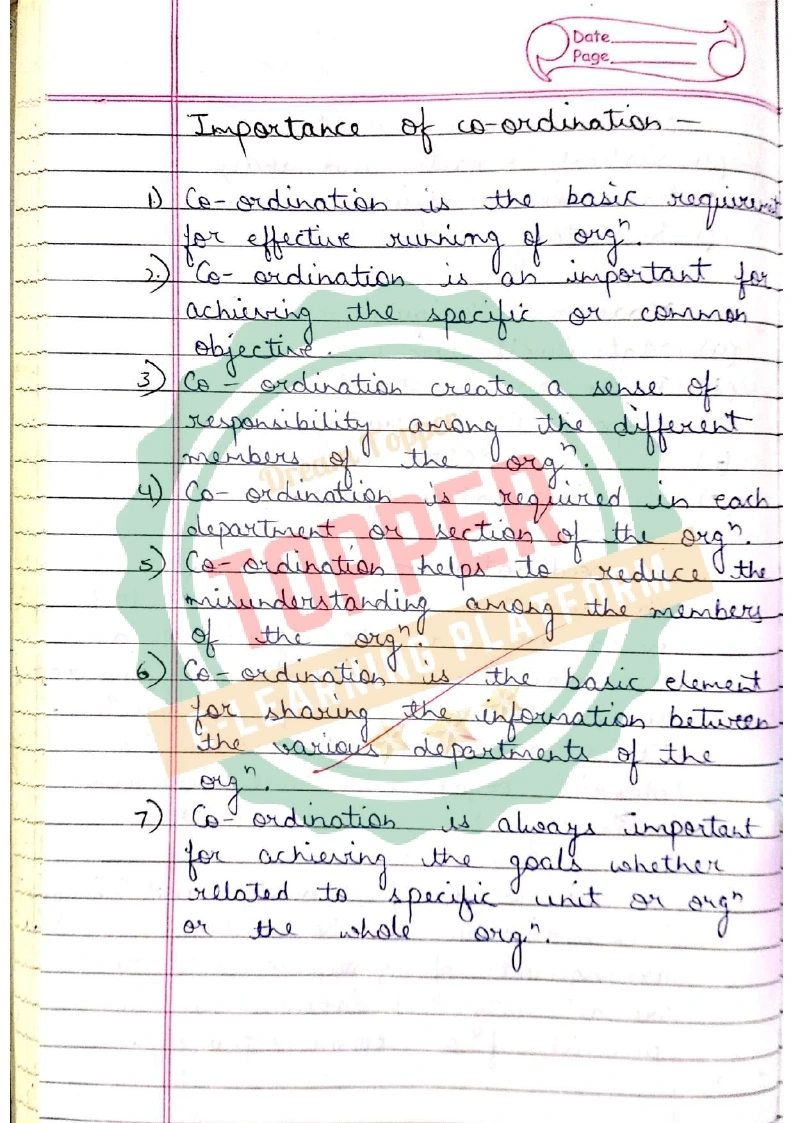 Date
Page
Importance of co-ordination –
1) Co-ordination is the basic requirement
for effective running of orgⁿ.
2.) Co-ordination is an important for
achieving the specific or common
objective.
3) Co-ordination create a sense of
responsibility among the different
members of the orgⁿ.
4) Co-ordination is required in each
department or section of the orgⁿ.
5) Co-ordination helps to reduce the
misunderstanding among the members
of the orgⁿ
6) Co-ordination is the basic element
for sharing the information between
the various departments of the
orgⁿ.
7) Co-ordination is always important
for achieving the goals whether
related to specific unit or orgⁿ
or the whole orgⁿ.
Dream Topper
TOPPER
LEARNING PLATFORM